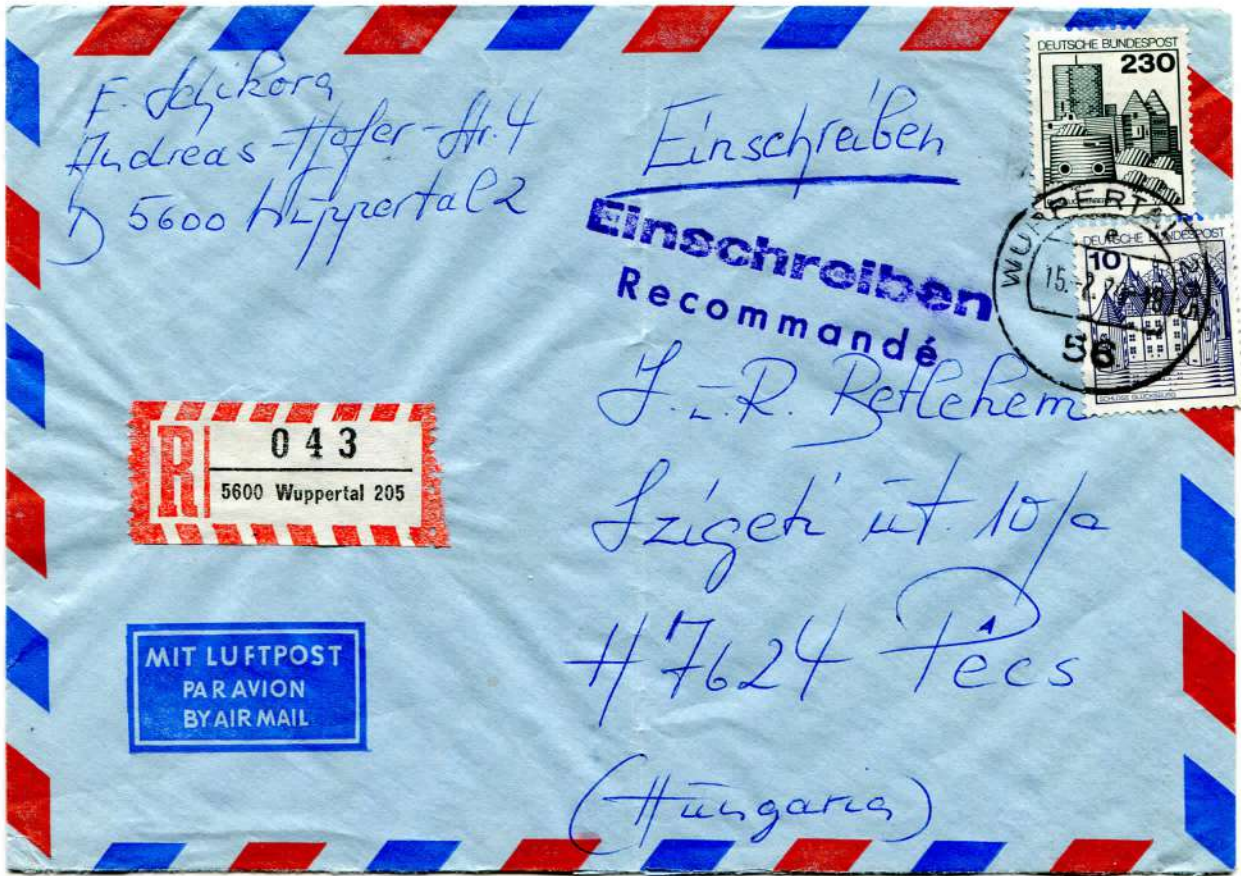 F. Schikora
Andreas-Hofer-Str. 4
D 5600 Wuppertal 2
Einschreiben
Einschreiben
Recommandé
DEUTSCHE BUNDESPOST
230
DEUTSCHE BUNDESPOST
10
SCHLOSS GLÜCKSBURG
WUPPERTAL 205
e
15.-2.
18
56
R
043
5600 Wuppertal 205
J.-R. Betlehem
Szigeti út. 10/a
H 7624 Pécs
(Hungaria)
MIT LUFTPOST
PAR AVION
BY AIR MAIL